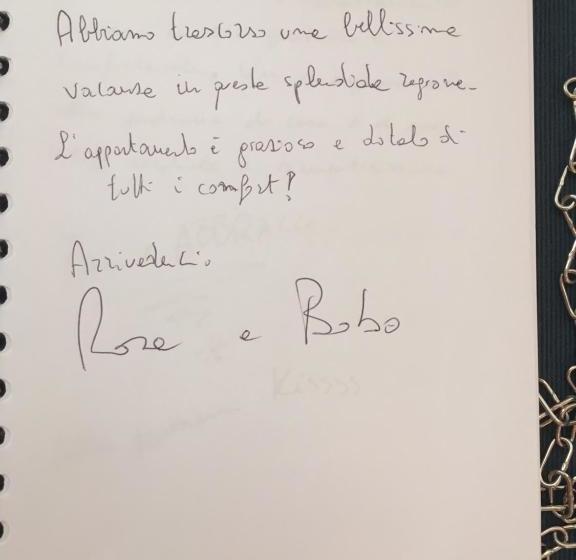 Abbiamo trascorso una bellissima
vacanza in questa splendida regione.
L'appartamento è grazioso e dotato di
tutti i comfort!
Arrivederci.
Rosa e Bobo
Kissss